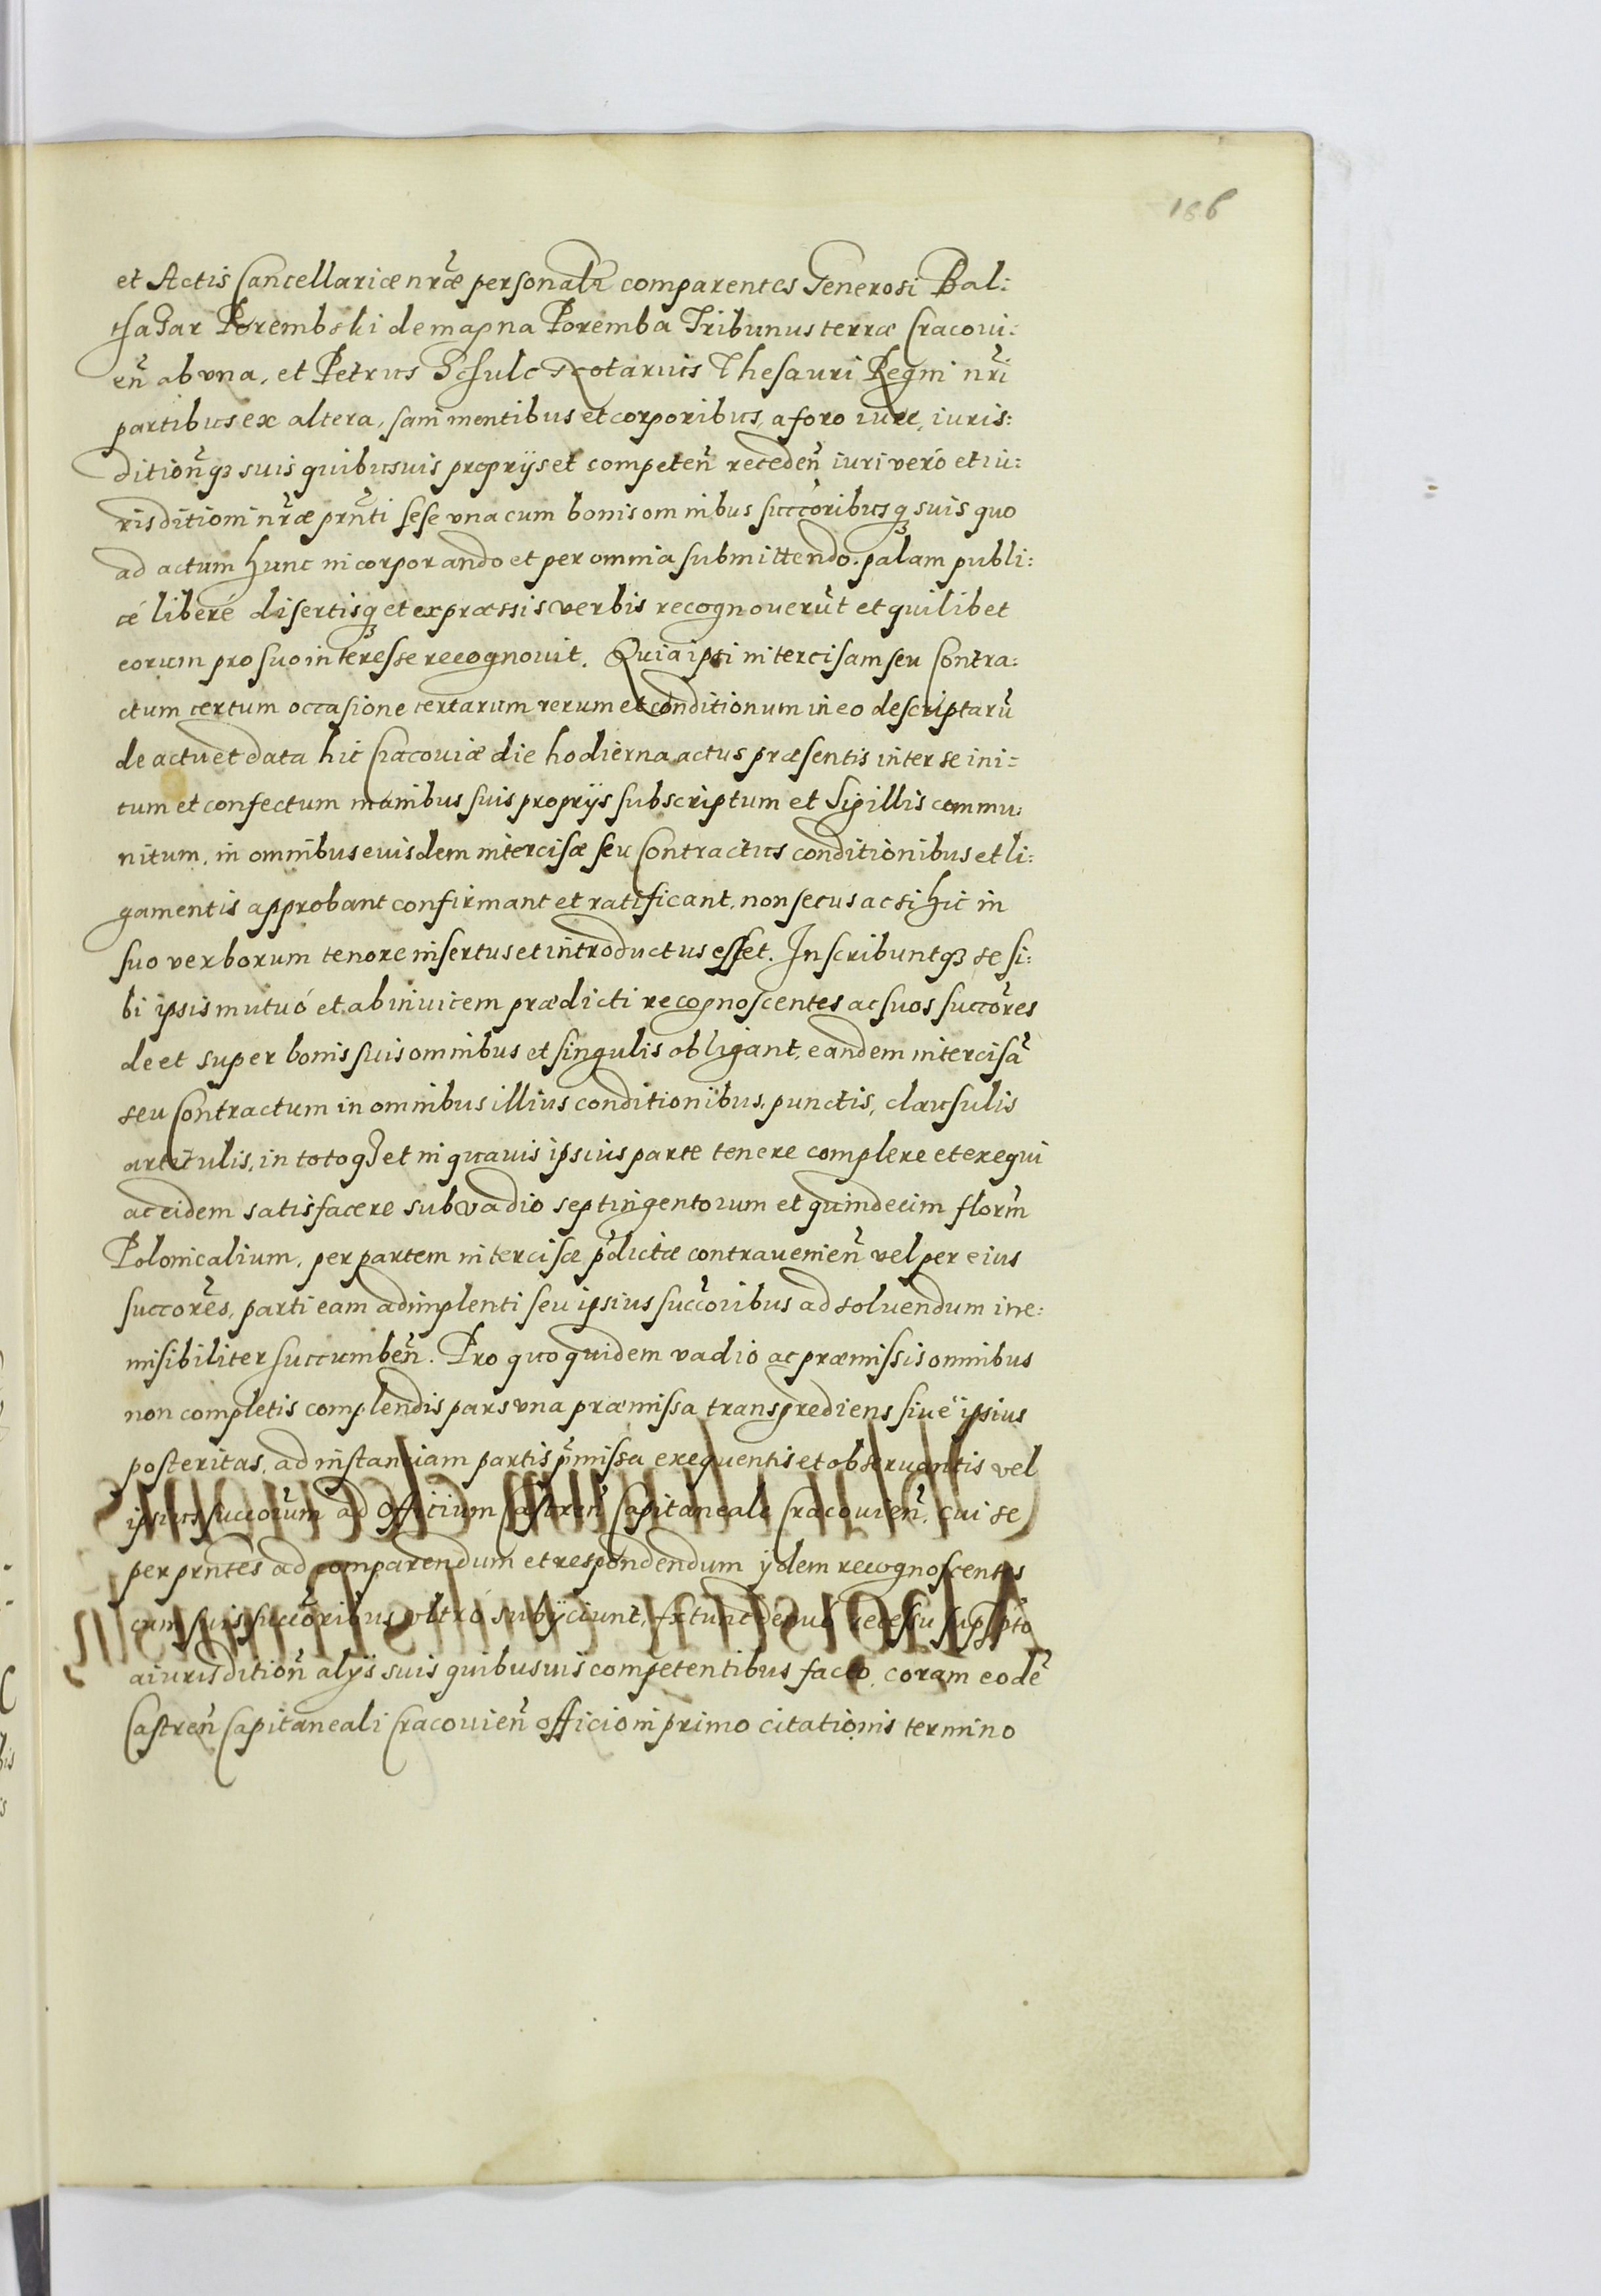 186
et Actis Cancellariæ nr̃æ personalr̃ comparentes Generosi Bal:
thaZar Porembski de magna Poremba Tribunus terræ Cracoui:
eñ ab vna, et Petrus Schulc Notarius Thesauri Regni nr̃i
partibus ex altera, sani mentibus et corporibus, a foro iure, iuris:
dition̄q3 suis quibusuis proprijs et competeñ recedeñ iuri veró et iu:
risditioni nr̃æ prñti sese vna cum bonis omnibus succõribusq3 suis quo
ad actum hunc incorporando et per omnia submittendo. palam publi:
cé liberé disertisq3 et expræssis verbis recognouerũt et quilibet
eorum pro suo interesse recognouit. Quia ipsi intercisam seu Contra:
ctum certum occasione certarum rerum et conditionum in eo descriptarũ
de actu et data hic Cracouiæ die hodierna actus præsentis inter se ini:
tum et confectum manibus suis proprijs subscriptum et Sigillis commu:
nitum, in omnibus euisdem intercisæ seu Contractus conditionibus et li:
gamentis approbant confirmant et ratificant, non secus ac si hic in
suo verborum tenore insertus et introductus esset. Inscribuntq3 se si:
bi ipsis mutuó et ab inuicem prædicti recognoscentes ac suos succõres
de et super bonis suis omnibus et singulis obligant, eandem intercisã
seu Contractum in omnibus illius conditionibus, punctis, clausulis
articulis, in totoq3 et in quauis ipsius parte tenere complere et exequi
ac eidem satisfacere sub vadio septingentorum et quindecim florm̃
Polonicalium, per partem intercisæ p̃dictæ contrauenieñ vel per eius
succorẽs, parti eam adimplenti seu ipsius succõribus ad soluendum irre:
misibiliter succumbeñ. Pro quo quidem vadio ac præmissis omnibus
non completis complendis pars vna præmissa transgrediens siue ipsius
posteritas, ad instantiam partis p̃missa exequentis et obseruantis vel
ipsius succorũm ad Officium Castreñ Capitaneale Cracouieñ, cui se
per prñtes ad comparendum et respondendum ÿdem recognoscentes
cum suis succõribus vltró subÿciunt, Ex tunc denuó recessu supscpto
a iurisditioñ alÿs suis quibusuis competentibus facto, coram eodẽ
Castreñ Capitaneali Cracouieñ officio in primo citationis termino